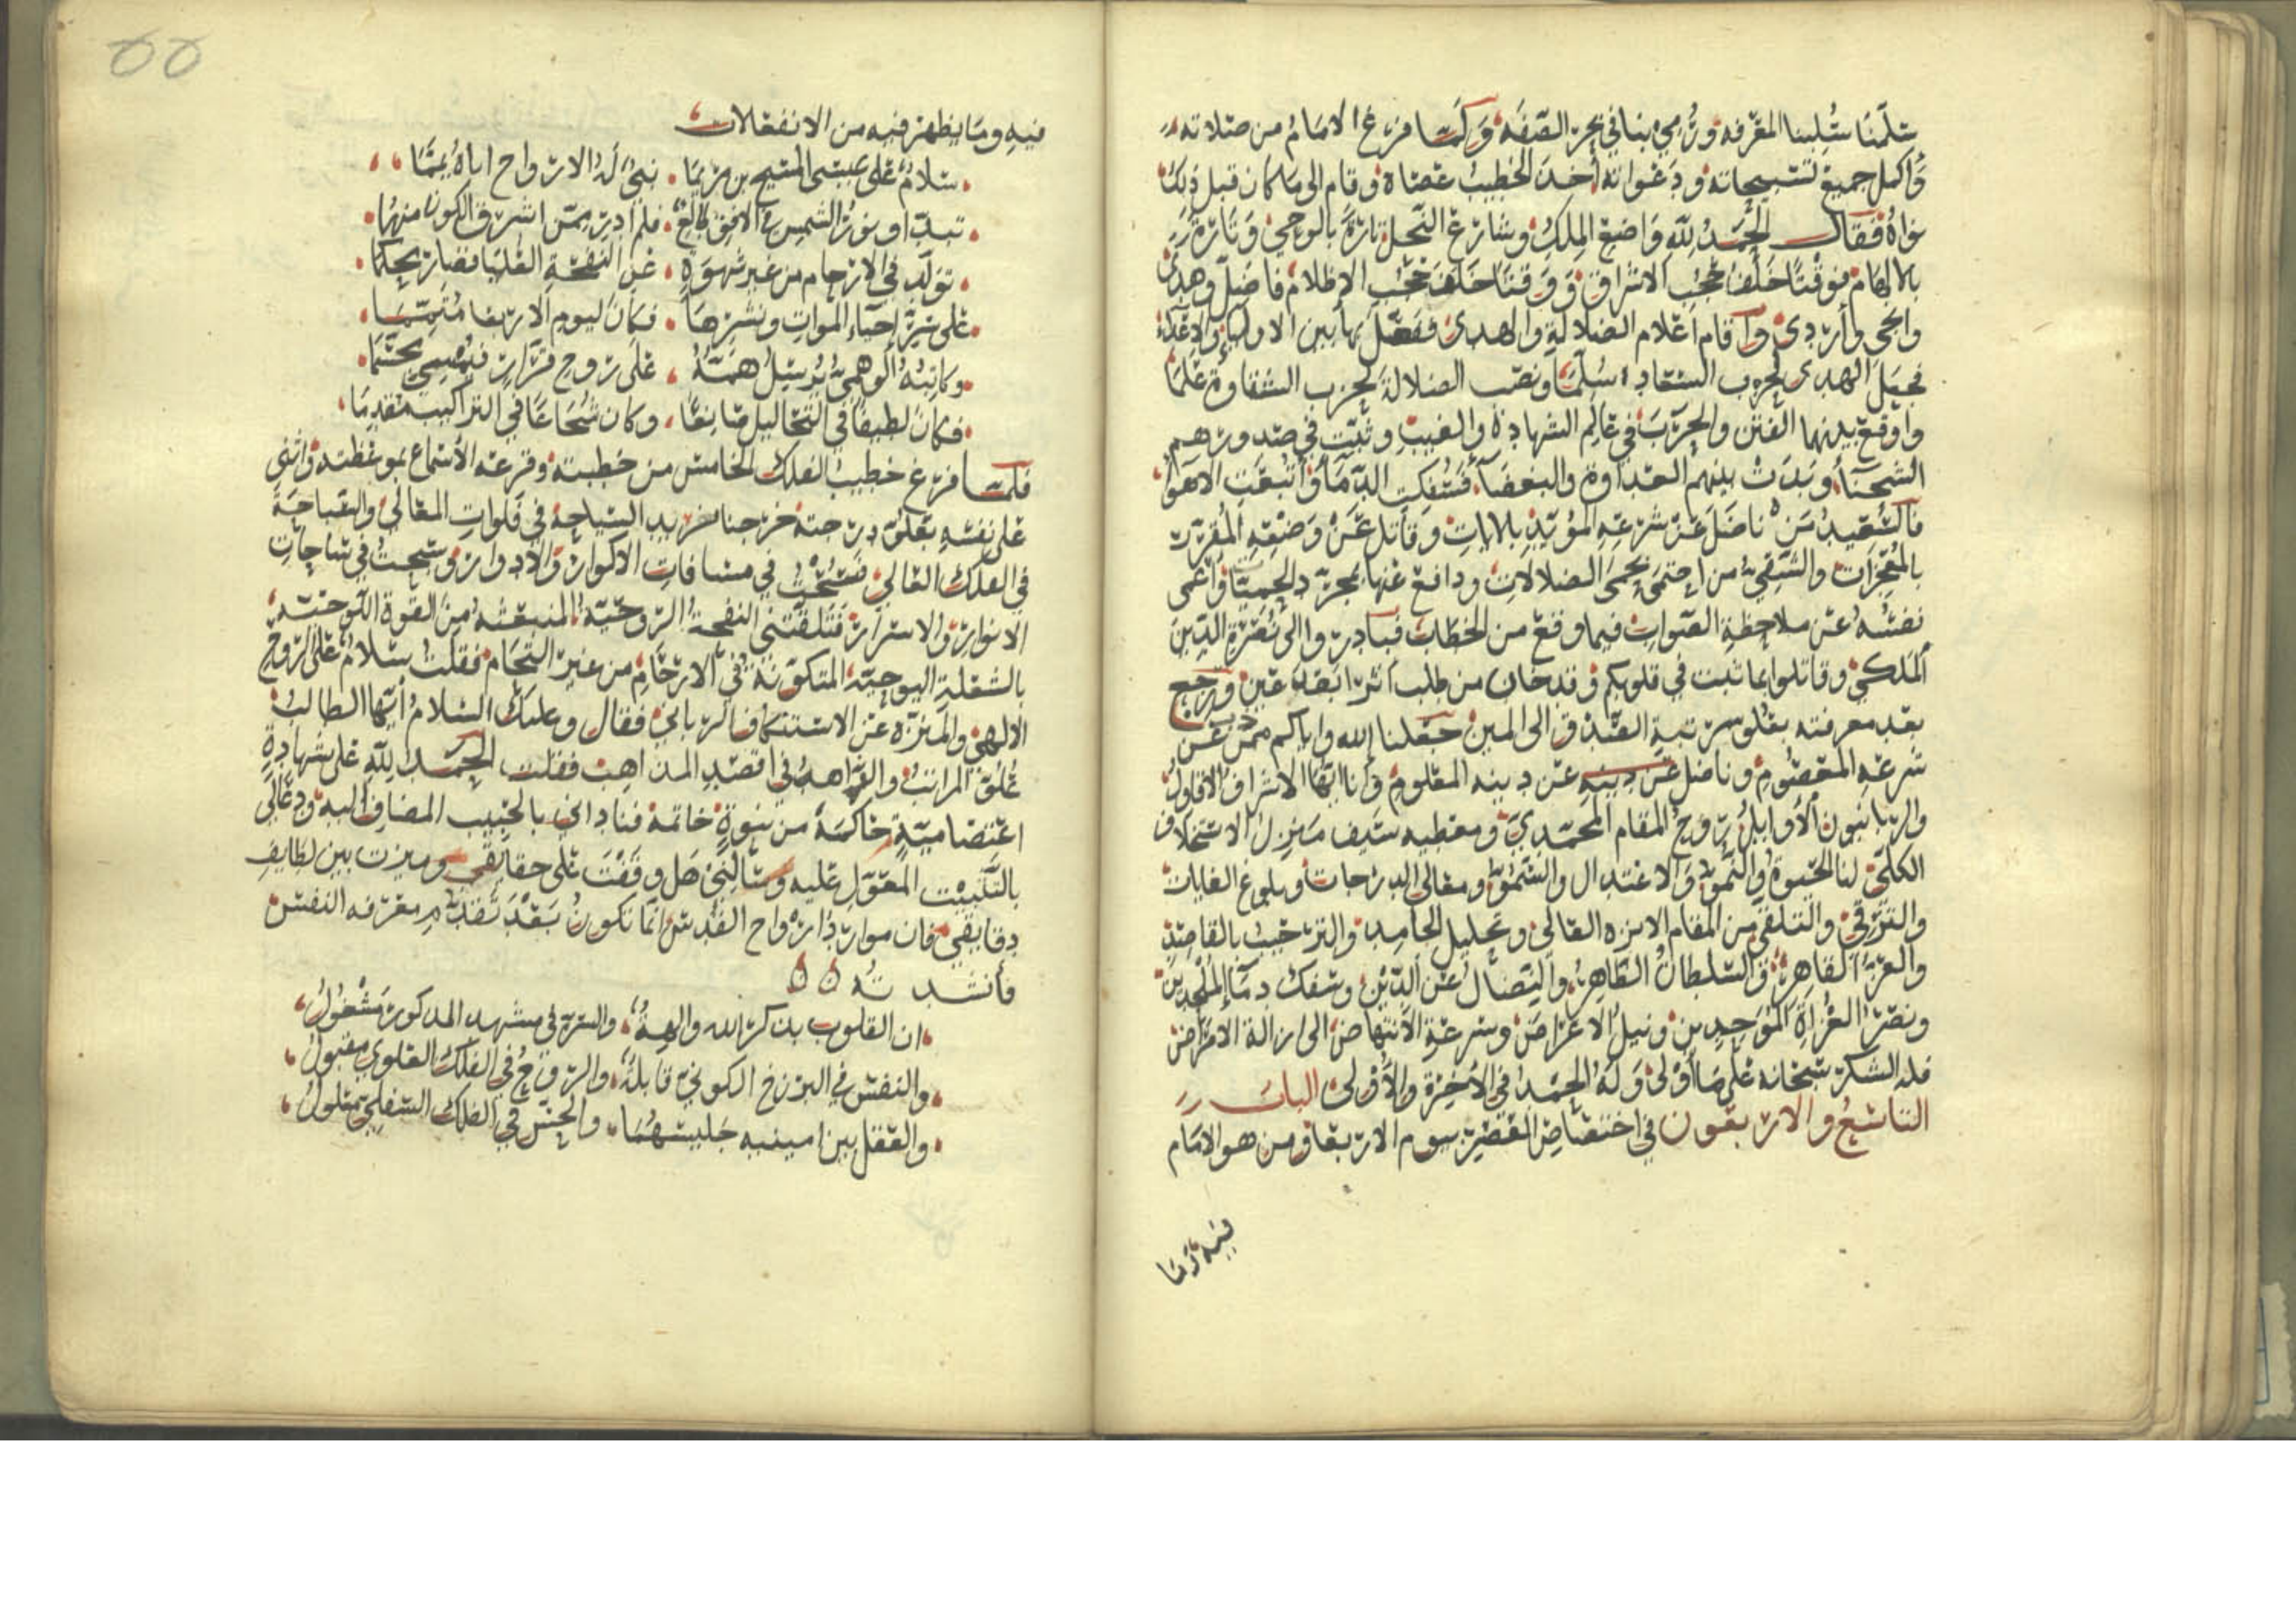 سلمنا سُلبنا المعرفه ورُمي بنا في بحر الصفه ولما فرغ الامام من صلاته
واكمل جميع تسبيحاته ودعواته أخذ الخطيب عصاه وقام الى ما كان قبل ذلك
نواه فقال الحمد لله واضع الملك وشارع النحل تارة بالوحي وتارة
بالالهام فوقتًا خلف حجب الاشراق ووقتا خلف حجب الاظلام فاضل وهدى
وانجى وأردى واقام اعلام الضلالة والهدى وفصل بها بين الاوليا والاعداء
فجعل الهدى لحزب السعادة سُلّمًا ونصب الضلالة لحزب الشقاوة علمًا
واوقع بينهما الفتن والحرب في عالم الشهادة والغيب وثبت في صدورهم
الشحنا وبدت بينهم العداوة والبغضا فسُفكت الدما واتبعت الاهوا
فالسعيد من ناضل عن شرعه المؤيد بالايات وقاتل عن وضعه المقرر
بالمعجزات والشقي من احتمى بحمى الضلالات ودافع عنها بمجرد الحميّات واعمى
نفسه عن ملاحظة الصواب فيما وقع من الخطاب فبادروا الى نصرة الدين
الملكي وقاتلوا بما ثبت في قلوبكم وقد خاب من طلب أثرا بعد عين ورجع
بعد معرفته بعلو مرتبة الصدق الى المين جعلنا الله واياكم ممن ذب عن
شرعه المعصوم وناضل عن دينه عن دينه المعلوم وانا ايها الاشراف الافاول
والربانيون الاوايل روح المقام المحمدي ومعطيه سيف منزل الاستخلاف
الكلي لنا الحيوة والنمو والاعتدال والسمو ومعالي الدرجات وبلوغ الغايات
والترقي والتلقي من المقام الانزه العالي وتحليل الجامد والترحيب بالقاصد
والعزة القاهرة والسلطان الظاهر والنضال عن الدين وسفك دما الملحدين
ونصر الغزاة الموحدين ونيل الاغراض وسرعة الانتهاض الى ازالة الامراض
فله الشكر سبحانه على ما أولى وله الحمد في الاخرة والاولى الباب
التاسع والاربعون في اختصاص العصر بيوم الاربعاء ومن هو الامام
فيه وما
٥٥
فيه وما يظهر فيه من الانفعالات
سلام على عيسى المسيح بن مريما نبيٌ له الارواح اباه يمما
تبدا ونور الشمس في الافق طالع فلم ادر ممن اشرق الكون منهما
تولد في الارحام من غير شهوة عن النفخة العليا فصار محكما
على سر احياء الموات ونشرها فكان ليوم الاربعا متمما
وكاتبه الوهمي يرسل همّهُ على روح فرار فيمسي مجسما
فكان لطيفا في التحاليل مانعا وكان شجاعا في التراكيب مقدما
فلما فرغ خطيب الفلك الخامس من خطبته وقرعه الأسماع بموعظته واثنى
على نفسه بعلو درجته خرجنا نريد السياحة في فلوات المعالي والسباحة
في الفلك العالي فسُحْتُ في مسافات الاكوار والادوار وسبحت في ساحات
الانوار والاسرار فتلقتني النفحة الروحيّة المنبعثه من القوة اللوحيّة
بالشعلة اليوحيّة المتكونة في الارحام من غير التحام فقلت سلام على الروح
الالهي والمنزه عن الاستنكاف الرباني فقال وعليك السلام أيها الطالب
علو المراتب والزاهد في اقصد المذاهب فقلت الحمد لله على شهادة
اعتصامية حاكمة من نبوة خاتمة فناداني بالحبيب المضاف اليه ودعاني
بالبيت المعول عليه وسالني هل وقفت على حقايقي وميزت بين لطايف
دقايقي فان موارد ارواح القدس انما تكون بَعْدَ تقدم معرفه النفس
فأنشدته
ان القلوب بذكر الله والهةٌ والسر في مشهد المذكور مشغول
والنفس في البرزخ الكوني قابلة والروح في الفلك العلوي مقبول
والعقل بين امينيه جليسهما والحس في الفلك السفلي مثلول